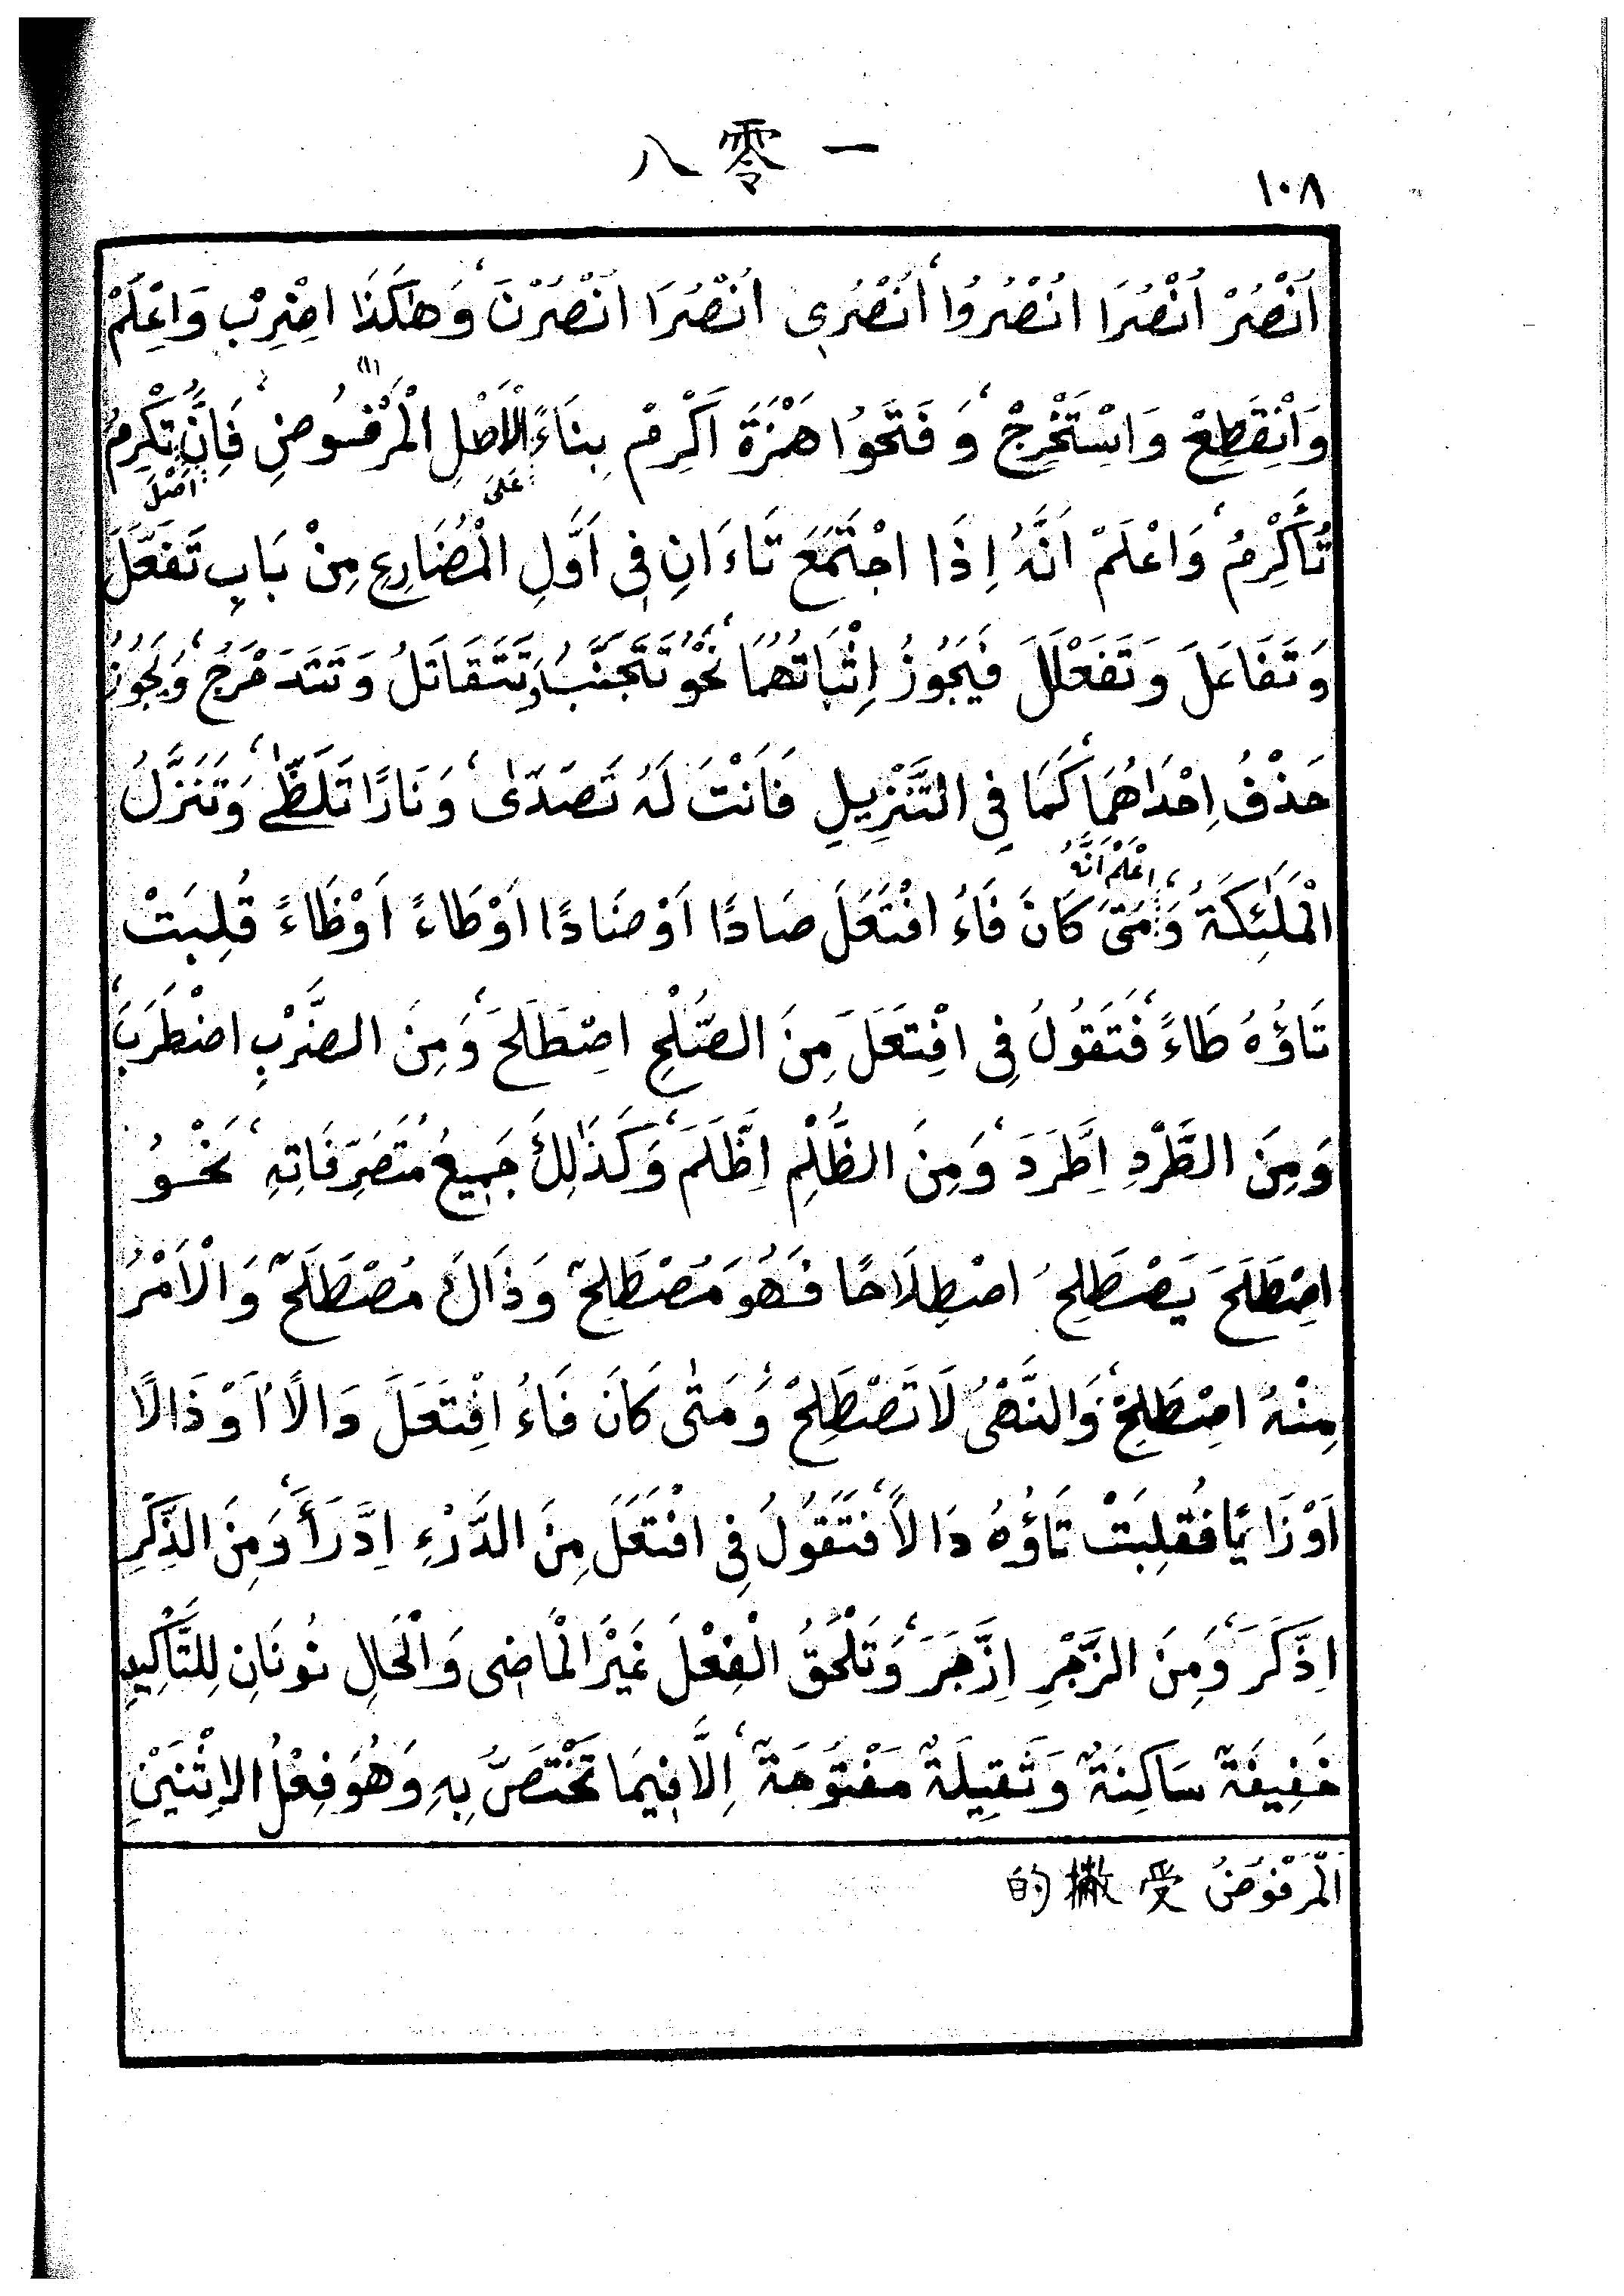 一零八
١٠٨
اُنْصُرْ اُنْصُرَا اُنْصُرُوا، اُنْصُرِى اُنْصُرَا اُنْصُرْنَ، وَهٰكَذَا اضْرِبْ وَاعْلَمْ
وَانْقَطِعْ وَاسْتَخْرِجْ، وَفَتَحُوا هَمْزَةَ اَكْرِمْ بِنَاءً الْاَصْلِ الْمَرْفُوضِ (١)، فَاِنَّ تُكْرِمُ
عَلَى اَصْلَ
تُأَكْرِمُ، وَاعْلَمْ اَنَّهُ اِذَا اجْتَمَعَ تَاءَانِ فِى اَوَّلِ الْمُضَارِعِ مِنْ بَابِ تَفَعَّلَ
وَتَفَاعَلَ وَتَفَعْلَلَ فَيَجُوزُ اِثْبَاتُهُمَا، نَحْوُ تَتَجَنَّبُ، وَتَتَقَاتَلُ وَتَتَدَحْرَجُ، وَيَجُوزُ
حَذْفُ اِحْدَاهُمَا، كَمَا فِى التَّنْزِيلِ فَاَنْتَ لَهُ تَصَدّٰى، وَنَارًا تَلَظّٰى، وَتَنَزَّلُ
اعْلَمْ اَنَّهُ
الْمَلٰئِكَةُ، وَمَتَى كَانَ فَاءُ افْتَعَلَ صَادًا اَوْ ضَادًا اَوْ طَاءً اَوْ ظَاءً قُلِبَتْ
تَاؤُهُ طَاءً، فَتَقُولُ فِى افْتَعَلَ مِنَ الصُّلْحِ اصْطَلَحَ، وَمِنَ الضَّرْبِ اضْطَرَبَ،
وَمِنَ الطَّرْدِ اِطَّرَدَ، وَمِنَ الظُّلْمِ اِظَّلَمَ، وَكَذٰلِكَ جَمِيعُ مُتَصَرِّفَاتِهِ، نَحْوُ
اصْطَلَحَ يَصْطَلِحُ اصْطِلَاحًا فَهُوَ مُصْطَلِحٌ وَذَاكَ مُصْطَلَحٌ وَالْاَمْرُ
مِنْهُ اصْطَلِحْ، وَالنَّهْىُ لَا تَصْطَلِحْ، وَمَتٰى كَانَ فَاءُ افْتَعَلَ دَالًا اَوْ ذَالًا
اَوْ زَايًا فَقُلِبَتْ تَاؤُهُ دَالًا، فَتَقُولُ فِى افْتَعَلَ مِنَ الدَّرْءِ اِدَّرَأَ، وَمِنَ الذِّكْرِ
اِذَّكَرَ، وَمِنَ الزَّجْرِ اِزَّجَرَ، وَتَلْحَقُ الْفِعْلَ غَيْرَ الْمَاضِى وَالْحَالِ نُونَانِ لِلتَّأْكِيدِ
خَفِيفَةٌ سَاكِنَةٌ وَثَقِيلَةٌ مَفْتُوحَةٌ، اِلَّا فِيمَا تَخْتَصُّ بِهِ وَهُوَ فِعْلُ الاِثْنَيْنِ
اَلْمَرْفُوضُ 受撇的